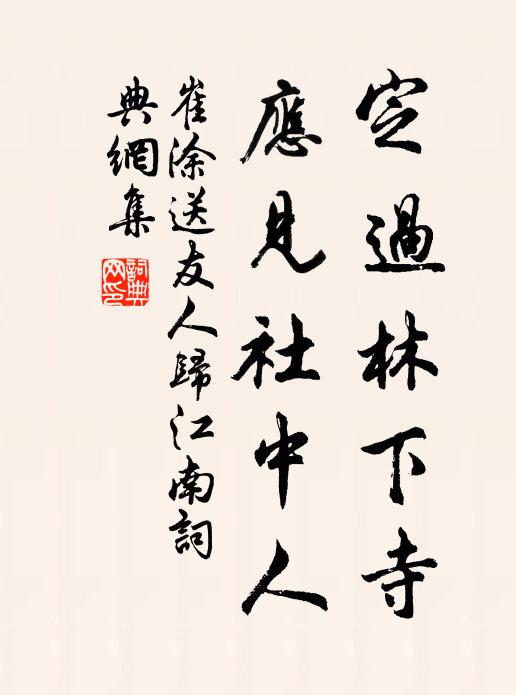 定過林下寺
應見社中人
崔涂送友人歸江南詞
典網集
詞典網印